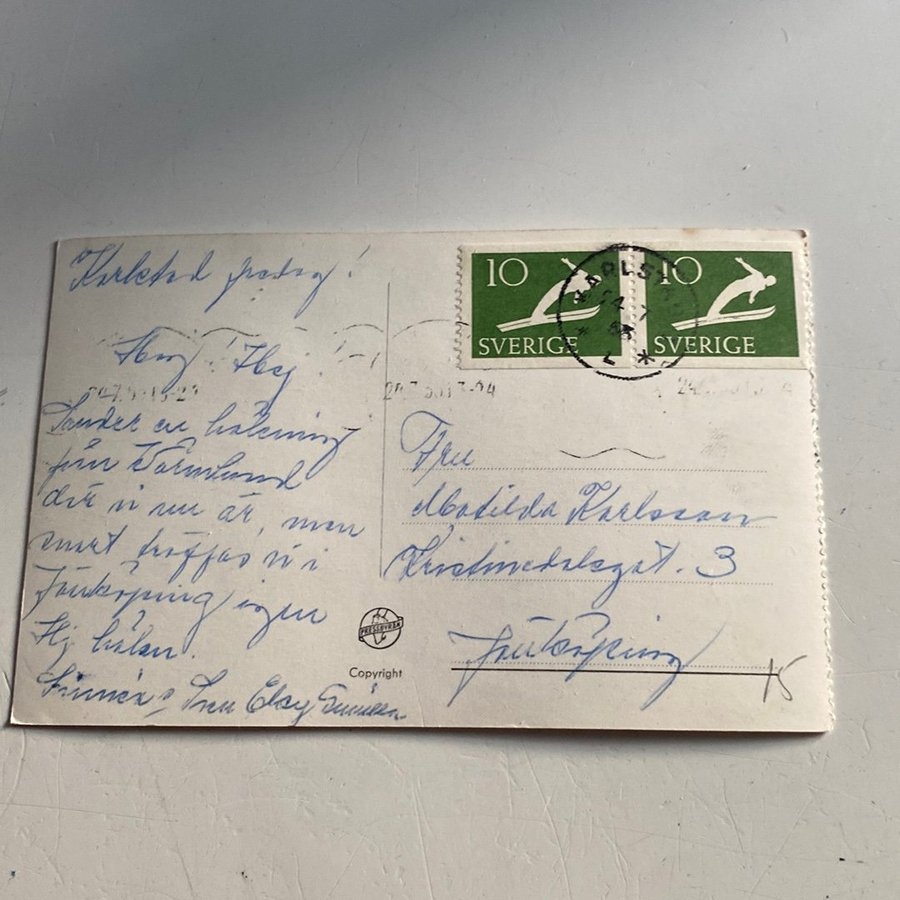 Karlstad fredag!
Hej! Hej!
Sänder en hälsning
från Värmland
där vi nu är, men
snart träffas vi i
Jönköping igen
Hej hälsn.
Elsy Gunilla
10
SVERIGE
10
SVERIGE
KARLSTAD
24 7
53
L *
Fru
Matilda Karlsson
Kristinedalsgat. 3
Jönköping
PRESSBYRÅN
Copyright
15